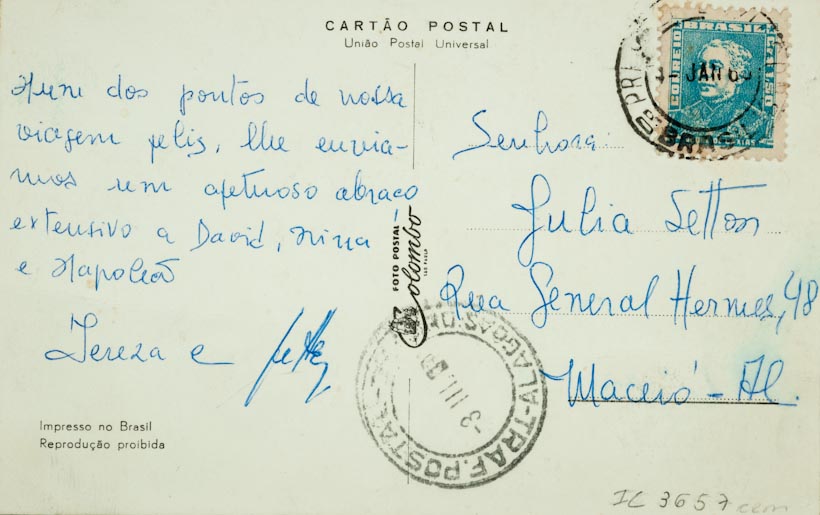 CARTÃO POSTAL
União Postal Universal
Num dos pontos de nossa
viagem feliz, lhe envia-
mos um afetuoso abraço
extensivo a David, Nina
e Napoleão
Tereza e
Impresso no Brasil
Reprodução proibida
FOTO POSTAL
Colombo
SÃO PAULO
BRASIL
CORREIO
JAN
BRASIL
Senhora:
Julia Setton
Rua General Hermes, 48
Maceió - Al.
TRAF. POSTAL - ALAGOAS
3 III
IC 3657